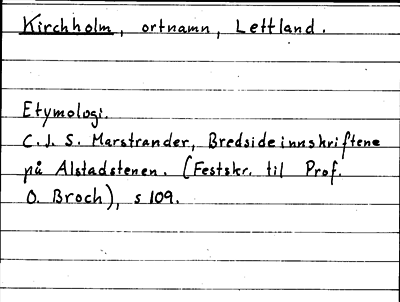 Kirchholm, ortnamn, Lettland.
Etymologi.
C.J.S. Marstrander, Bredsideinnskriftene
på Alstadstenen. (Festskr. til Prof.
O. Broch), s 109.